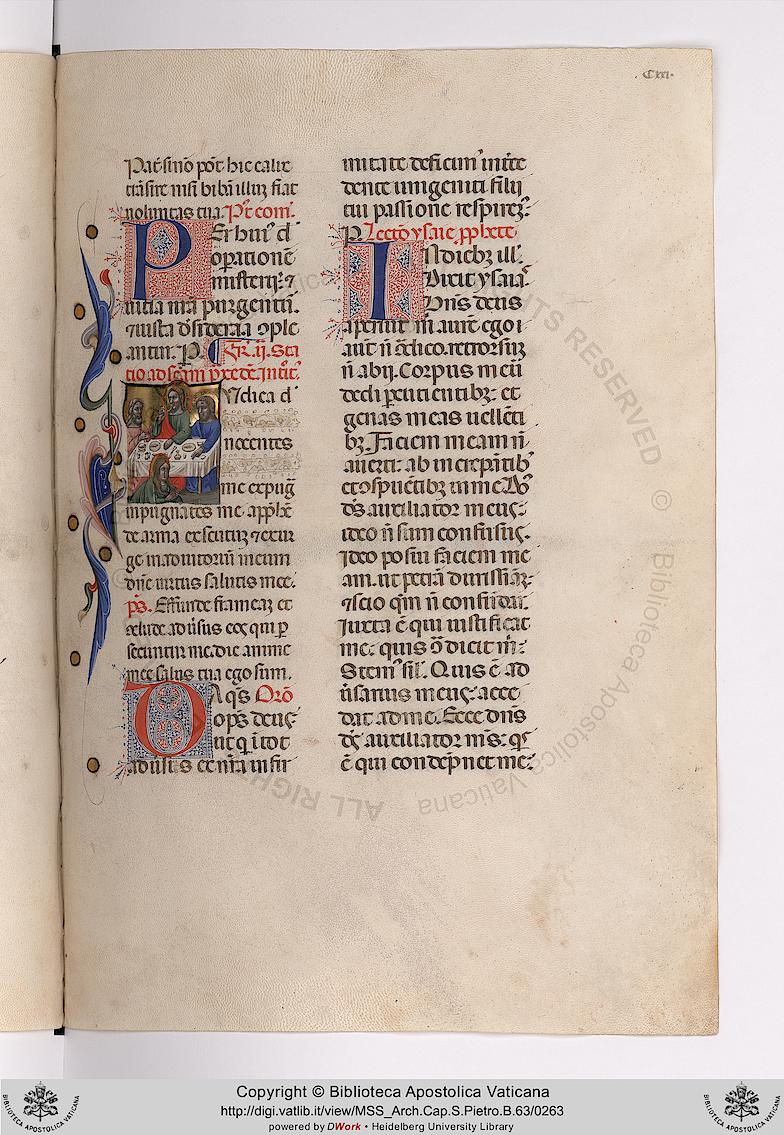 Cxxi.
Pat̄ si nō pōt hic calix
trāsire nisi bibā illuȝ fiat
uoluntas tua. Pꝰt com̄.
Per huiꝰ d
opationē
misterij ⁊
uitia nr̄a purgentur.
⁊ iusta dsideria ɔple
antur. P.
Fr̄. ij. Sta
tio ad scām priscē. Introit.
Iudica d
nocentes
me expug
inpugnates me. appħē
de arma et scutuȝ ⁊ exur
ge in adiutoriū meum
dn̄e uirtus salutis mee.
pō. Effunde frameaȝ et
ɔclude aduīsus eos qui p
secuntur me. dic anime
mee salus tua ego sum.
Da q̄s Orō
ops̄ deus
ut q̄ ī tot
aduīsis ex nr̄a infir
mitate deficimꝰ intc̄e
dente unigeniti filij
tui passione respiremꝰ.
P. Lectō ysaie ꝓphete
In diebȝ ill.
Dixit ysaias
Dn̄s deus
aperuit m̄ aurē ego
aut̄ n̄ ɔdico. retrorsuȝ
n̄ abij. Corpus meū
dedi pcutientibȝ et
genas meas uellēti
bȝ. Faciem meam n̄
auerti ab increpātibꝰ
et ɔspuētibȝ in me. Dn̄s
ds̄ auxiliator meus
ideo n̄ sum confusus.
Ideo posui faciem me
am. ut petrā durissimā
⁊ scio qm̄ n̄ confūdar.
Iuxta ē qui iustificat
me. quis ɔ̄dicit m̄.
Stemꝰ sīl. Quis ē ad
uīsarius meus. acce
dat ad me. Ecce dn̄s
ds̄ auxiliator ms̄. q̄s
ē qui condepnet me.
Copyright © Biblioteca Apostolica Vaticana
http://digi.vatlib.it/view/MSS_Arch.Cap.S.Pietro.B.63/0263
powered by DWork • Heidelberg University Library
BIBLIOTECA APOSTOLICA VATICANA
BIBLIOTECA APOSTOLICA VATICANA
ALL RIGHTS RESERVED © Biblioteca Apostolica Vaticana